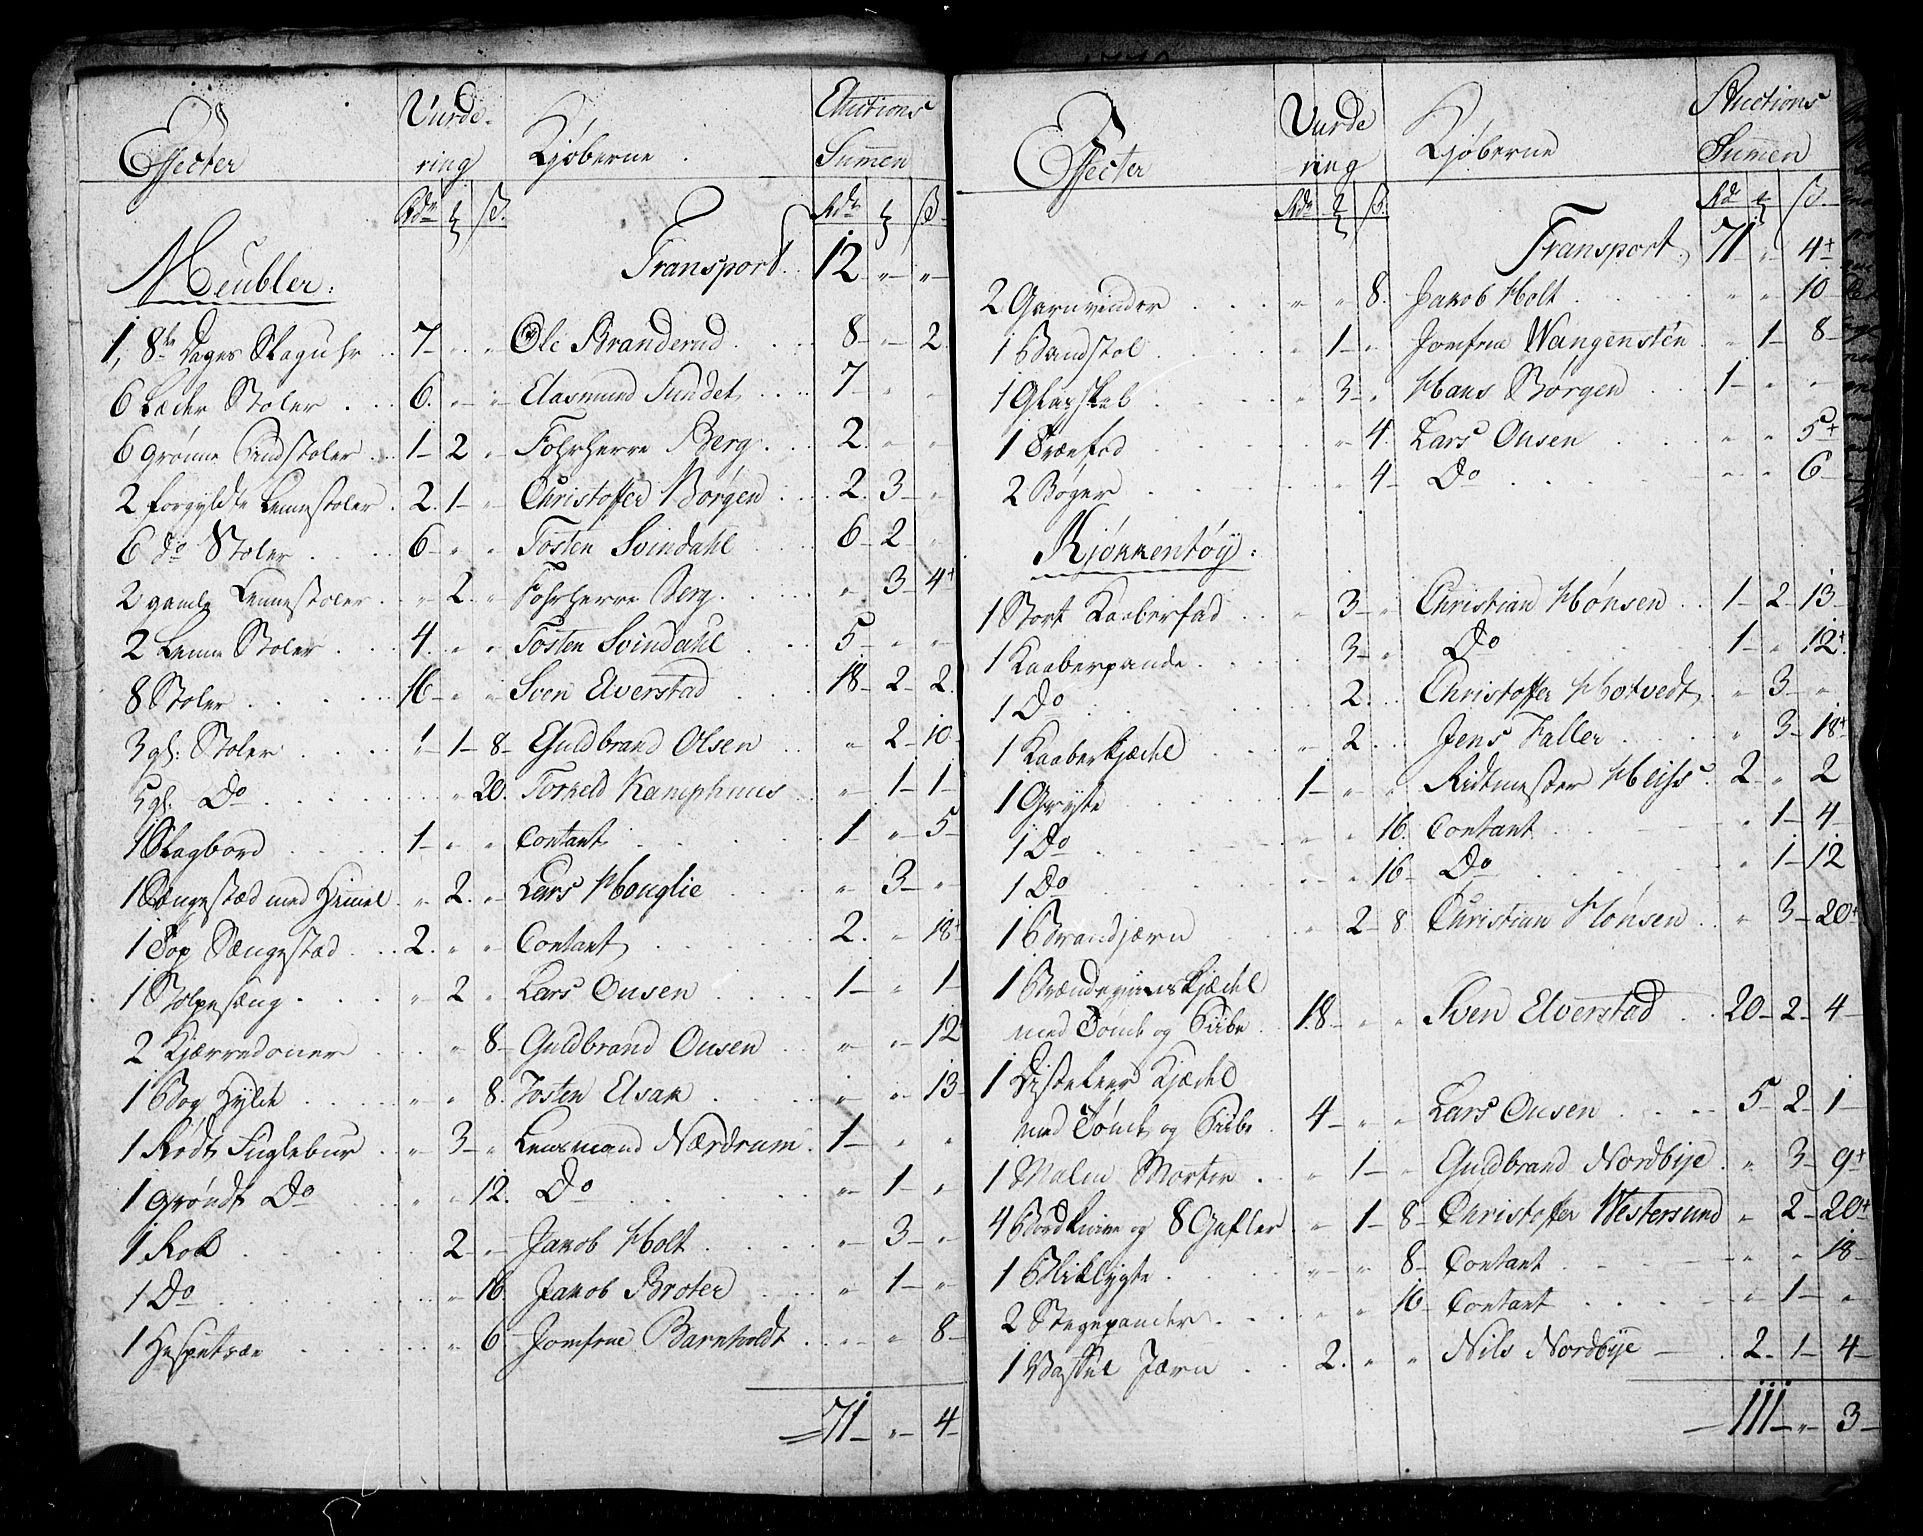 Effecter Vurde- Kjøberne Auctions
ring Summen
Rdr ß. Rdr ß
Meubler: Transport 12 „ „
1, 8te Dages Slaguhr 7 „ „ Ole Branderud 8 „ 2
6 Læder Stoler 6 „ „ Aasmund Sundet 7 „ „
6 Grønne Stoler 1 2 „ Fohrherre Berg 2 „ „
2 forgyldte Lennestoler 2 1 „ Christoffer Børgen 2 3 „
6 Do Stoler 6 „ „ Tosten Svindahl 6 2 „
2 gamle Lennestoler „ 2 „ Fohrherre Berg „ 3 4
2 Lenne Stoler 4 „ „ Tosten Svindahl 5 „ „
8 Stoler 16 „ „ Sven Elverstad 18 2 2
3 gl: Stoler „ 1 8 Guldbrand Olsen „ 2 10
5 gl: Do „ 20 Torkeld Kamphuus „ 1 1
1 Slagbord 1 „ „ Contant 1 „ 5
1 Sengestæd med Himel „ 2 „ Lars Houglie „ 3 „
1 Top Sængestad 2 „ „ Contant 2 „ 18
1 Stolpesæng „ 2 „ Lars Ousen 1 „ 1
2 Kjærredoner „ 8 Guldbrand Ousen „ „ 12
1 Bog Hylde „ „ 8 Tosten Elsak „ „ 13
1 Rødt Fuglebur „ 3 „ Lensmand Nærdrum 1 „ „
1 Grøndt Do „ „ 12 Do „ 1 „
1 Rok 2 „ Jakob Holt „ 3 „
1 Do „ 16 Jakob Broter „ 1 „
1 Hespetræe „ 6 Jomfrue Barnholdt „ „ 8
71 „ 4
Effecter Vurde Kjøberne Auctions
ring Summen
Rdr ß. Rd ß.
Transport 71 „ 4
2 Garnvinder „ „ 8 Jakob Holt „ „ 10
1 Bandstol „ 1 „ Jomfrue Wangenstén „ 1 8
1 Glasskab „ 3 „ Hans Børgen 1 „ „
1 Træefad „ 4 Lars Ousen „ „ 5
2 Bøger „ 4 Do „ „ 6
Kjøkkentøy:
1 Stort Kaaberfad „ 3 „ Christian Hønsen 1 2 13
1 Kaaberpande 3 „ Do 1 „ 12
1 Do 2 Christoffer Hotvedt „ 3 „
1 Kaaberkjædel „ 2 Jens Faller „ 3 18
1 Gryte 1 „ „ Ridtmester Heiss 2 „ 2
1 Do „ „ 16 Contant „ 1 4
1 Do „ „ 16 Do „ 1 12
1 Brandjærn „ 2 8 Christian Hønsen „ 3 20
1 Brændeviinskjædel
med Tønde og Piibe 18 „ „ Sven Elverstad 20 2 4
1 Disteleer Kjædel
med Tønde og Piibe 4 „ „ Lars Ousen 5 2 1
1 Malm Morter „ 1 „ Guldbrand Nordbye „ 3 9
4 Bordknive og 8 Gafler „ 1 8 Christoffer Westersund „ 2 20
1 Bliklygte „ „ 8 Contant „ „ 18
2 Stegepander „ „ 16 Contant „ 1 „
1 Vaffel Jærn 2 „ „ Nils Nordbye 2 1 4
111 „ 3